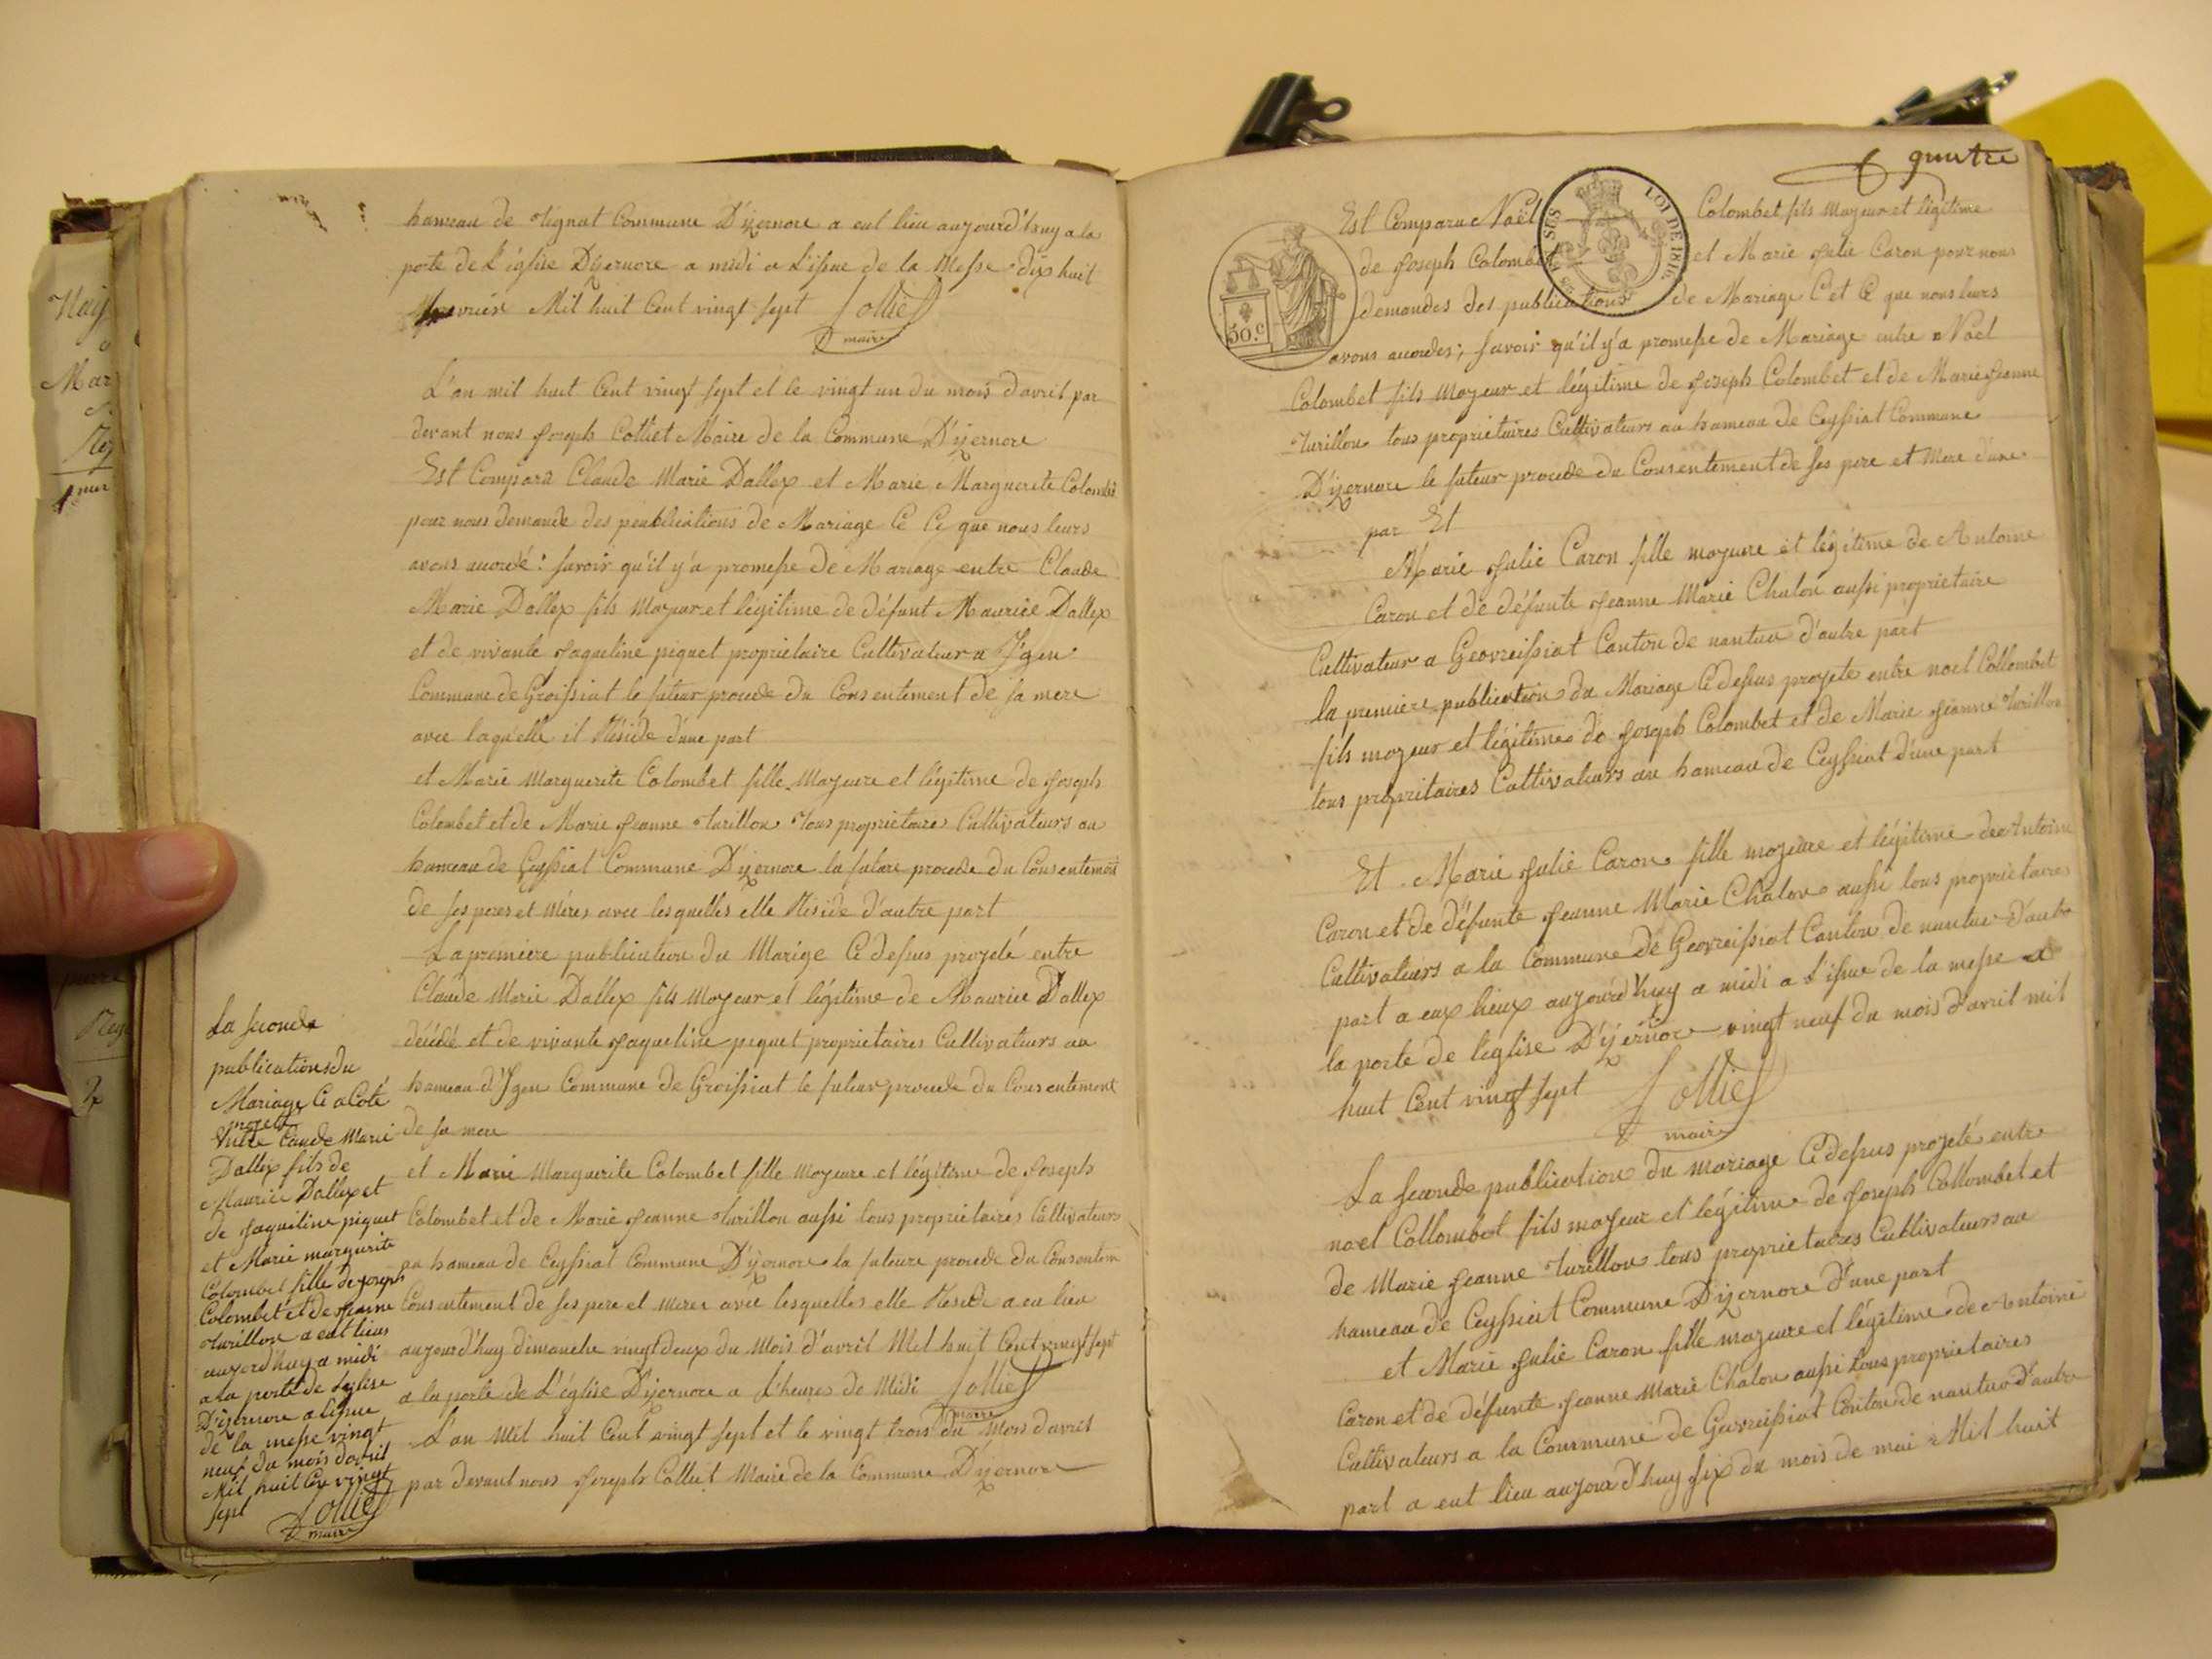 hameau de tignat Commune D'izernore a eut lieu aujourd'huy a la
porte de L'église Dizernore a midi a L'issue de la Messe dix huit
Mil huit Cent vingt sept Colliet
maire
L'an mil huit Cent vingt sept et le vingt un du mois d'avril par
devant nous Joseph Colliet Maire de la Commune D'izernore
Est Compara Claude Marie Dallex et Marie Marguerite Colombet
pour nous demande des peublications de Mariage Ce Ce que nous leurs
avons accordé : savoir qu'il y'a promesse de Mariage entre Claude
Marie Dallex fils Mayeur et légitime de défunt Maurice Dallex
et de vivante Jaqueline piquet proprietaire Cultivateur a Igen
Commune de Groissiat le futeur procede du Consentement de sa mere
avec laquelle il Réside d'une part
et Marie Marguerite Colombet fille Mayeure et légitime de Joseph
Colombet et de Marie Jeanne turillon tous proprietaires Cultivateurs au
hameau de Ceyssiat Commune D'izernore la future procede du Consentement
de ses peres et Méres avec lesquelles elle Réside d'autre part
La premiere publication du Marige Ce dessus projeté entre
Claude Marie Dallex fils Mayeur et légitime de Maurice Dallex
décédé et de vivante Jaqueline piquet proprietaires Cultivateurs au
hameau d'Igen Commune de Groissiat le futeur procede du Consentement
de sa mere
et Marie Marguerite Colombet fille Mayeure et légitime de Joseph
Colombet et de Marie Jeanne turillon aussi tous proprietaires Cultivateurs
au hameau de Ceyssiat Commune D'izernore la future procede du Consentem
Consentement de ses pere et Meres avec lesquelles elle Reside a eu lieu
aujourd'huy dimanche vingt deux du Mois d'avril Mil huit Cent vingt sept
a la porte de L'église Dizernore a L'heures de Midi Colliet
maire
L'an Mil huit Cent vingt sept et le vingt trois du Mois d'avril
par devant nous Joseph Colliet Maire de la Commune D'izernore
La seconde
publications du
Mariage Ce a Coté
projeté
Entre Claude Marie
Dallex fils de
Maurice Dallex et
de Jaquéline piquet
et Marie marguerite
Colombet fille de Joseph
Colombet et de Jeanne
turillon a eut lieus
aujord'huy a midi
a la porte de leglise
D'izernore a lissue
de la messe vingt
neuf du mois davril
Mil huit Cen vingt
sept Colliet
maire
quatre
Est Comparu Noël Colombet fils Mayeur et légitime
de Joseph Colombet et Marie Julie Caron pour nous
demandes des publications de Mariage Cet Ce que nous leurs
avons accordes; savoir qu'il y'a promesse de Mariage entre Noël
Colombet fils Mayeur et légitime de Joseph Colombet et de Marie Jeanne
turillon tous proprietaires Cultivateurs au hameau de Ceyssiat Commune
D'izernore le futeur procede du Consentement de ses pere et Mere d'une
par Et
Marie Julie Caron fille mayeure et légitime de Antoine
Caron et de défunte Jeanne Marie Chalon aussi proprietaire
Cultivateur a Geovreissiat Canton de nantua d'autre part
la premiere publication du Mariage Ce dessus projete entre noel Collombet
fils mayeur et légitime de Joseph Colombet et de Marie Jeanne turillon
tous propritaires Cultivateurs au hameau de Ceyssiat d'une part
Et Marie Julie Caron fille mayeure et légitime de Antoine
Caron et de défunte Jeanne Marie Chalon aussi tous proprietaires
Cultivateurs a la Commune de Geovreissiat Canton de nantua d'autre
part a eux lieux aujourd'huy a midi a L'issue de la messe a
la porte de leglise D'izernore vingt neuf du mois d'avril mil
huit Cent vingt sept Colliet
maire
La seconde publication du mariage Ce dessus projeté entre
noel Collombet fils mayeur et légitime de Joseph Collombet et
de Marie Jeanne turillon tous proprietaires Cultivateurs au
hameau de Ceyssiat Commune Dizernore d'une part
et Marie Julie Caron fille mayeure et légitime de Antoine
Caron et de défunte Jeanne Marie Chalon aussi tous proprietaires
Cultivateurs a la Commune de Gevreissiat Canton de nantua d'autre
part a eut lieu aujour d'huy six du mois de mai Mil huit
LOI DE 1816
50.c
Naiss
Mar